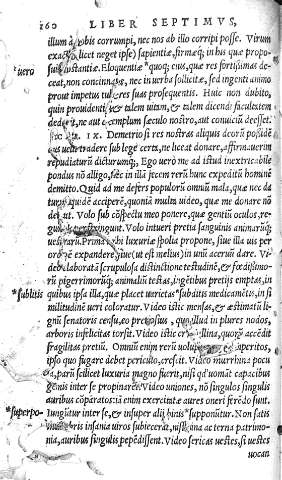 260 LIBER SEPTIMVS,
illum à nobis corrumpi, nec nos ab illo corripi posse. Virum
exactæ (licet neget ipse) sapientiæ, firmæq; in his quæ propo-
*uero suit constantiæ. Eloquentiæ *quoq; eius, quæ res fortissimas de-
ceat, non concinnatæ, nec in uerba sollicitæ, sed ingenti animo
prout impetus tulit res suas prosequentis. Huic non dubito,
quin prouidentia & talem uitam, & talem dicendi facultatem
dederit, ne aut exemplum sæculo nostro, aut conuicium deesset.
IX. Demetrio si res nostras aliquis deorū possidē
das uelit tradere sub lege certa, ne liceat donare, affirmauerim
repudiaturū dicturumq;, Ego uerò me ad istud inextricabile
pondus nō alligo, nec in illā fæcem rerū hunc expeditū hominē
demitto. Quid ad me defers populorū omniū mala, quæ nec da-
turus quidē acciperē, quoniā multa uideo, quæ me donare nō
deceat. Volo sub cōspectu meo ponere, quæ gentiū oculos, re-
gumq; perstringunt. Volo intueri pretia sanguinis animarūq;
uestrarū. Prima mihi luxuriæ spolia propone, siue illa uis per or-
dinē expandere, siue (ut est melius) in unū aceruū dare. Vi-
deo elaboratā scrupulosa distinctione testudinē, & fœdissimo-
rū pigerrimorūq; animaliū testas, ingētibus pretijs emptas, in
*subditis quibus ipsa illa, quæ placet uarietas *subditis medicamētis, in si
militudinē ueri coloratur. Video istic mensas, & æstimatū li-
gnū senatorio censu, eo preciosius, quo illud in plures nodos,
arboris infelicitas torsit. Video istic crystallina, quorū accēdit
fragilitas pretiū. Omniū enim rerū uoluptas apud imperitos,
ipso quo fugare debet periculo, crescit. Video murrhina pocu
la, parū scilicet luxuria magno fuerit, nisi qd' uomāt capacibus
gemis inter se propinarēt. Video uniones, nō singulos singulis
auribus cōparatos: iā enim exercitatæ aures oneri ferēdo sunt.
*superpo- Iunguntur inter se, & insuper alij binis *supponūtur. Non satis
muliebris insania uiros subiecerat, nisi bina ac terna patrimo-
nia, auribus singulis pepēdissent. Video sericas uestes, si uestes
uocan